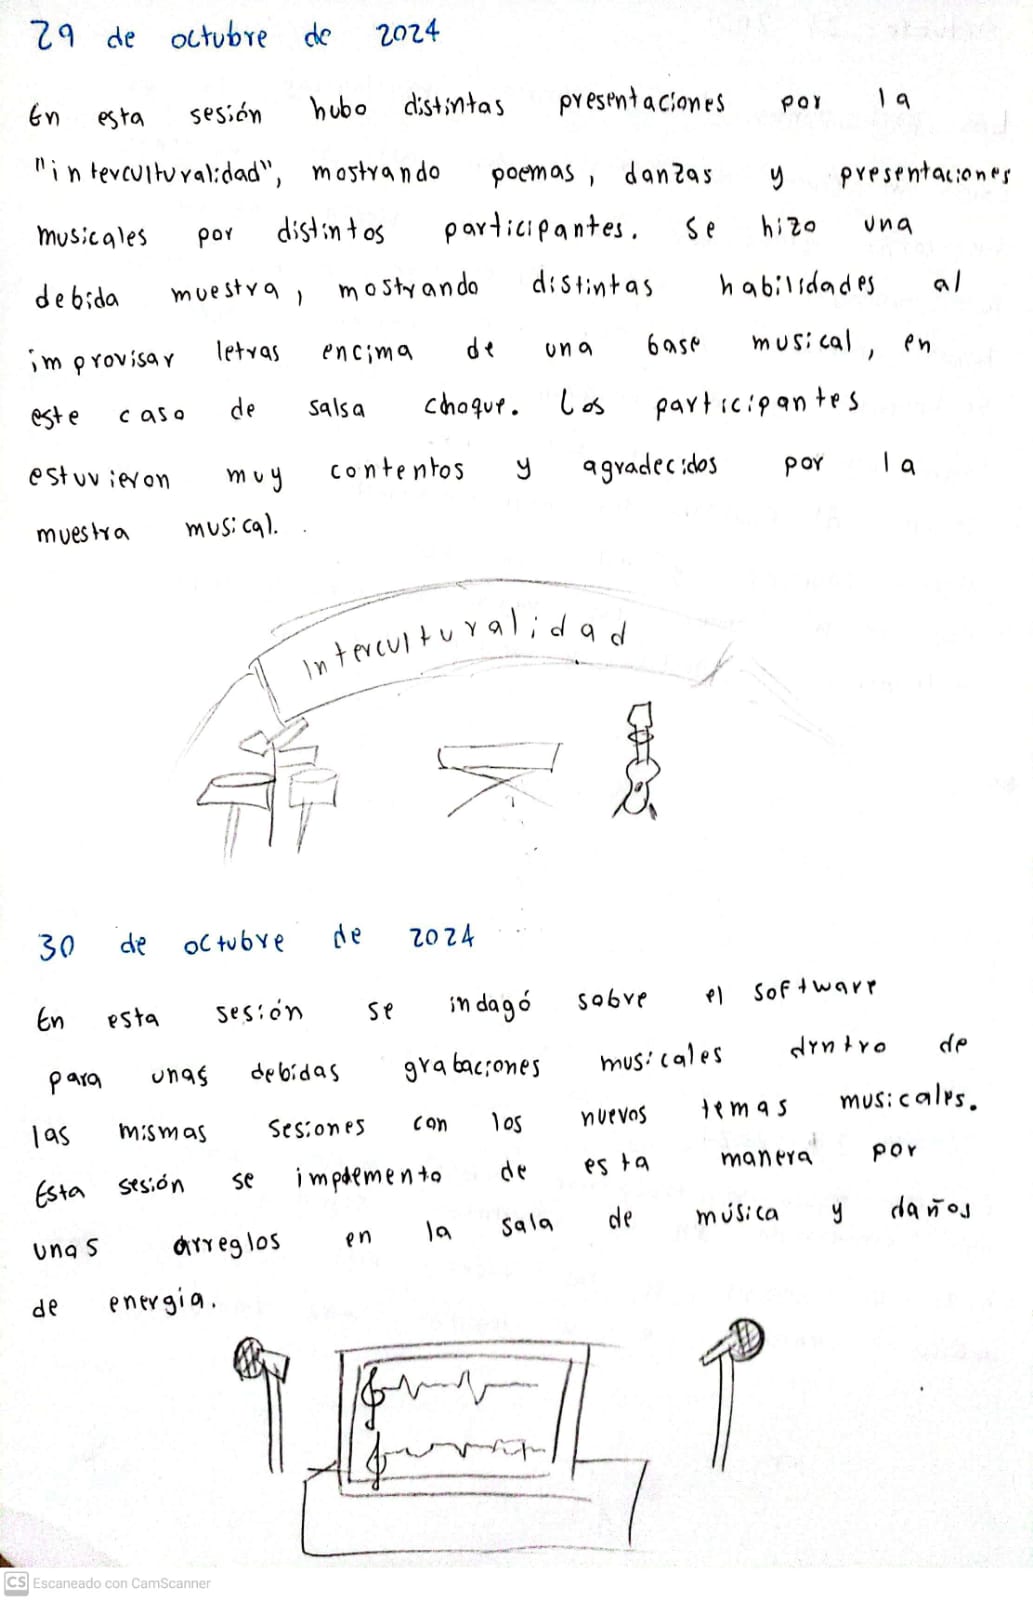 29 de octubre de 2024
En esta sesión hubo distintas presentaciones por la
"interculturalidad", mostrando poemas, danzas y presentaciones
musicales por distintos participantes. Se hizo una
debida muestra, mostrando distintas habilidades al
improvisar letras encima de una base musical, en
este caso de salsa choque. Los participantes
estuvieron muy contentos y agradecidos por la
muestra musical.
Interculturalidad
30 de octubre de 2024
En esta sesión se indagó sobre el software
para unas debidas grabaciones musicales dentro de
las mismas sesiones con los nuevos temas musicales.
Esta sesión se implemento de esta manera por
unas arreglos en la sala de música y daños
de energía.
CS Escaneado con CamScanner